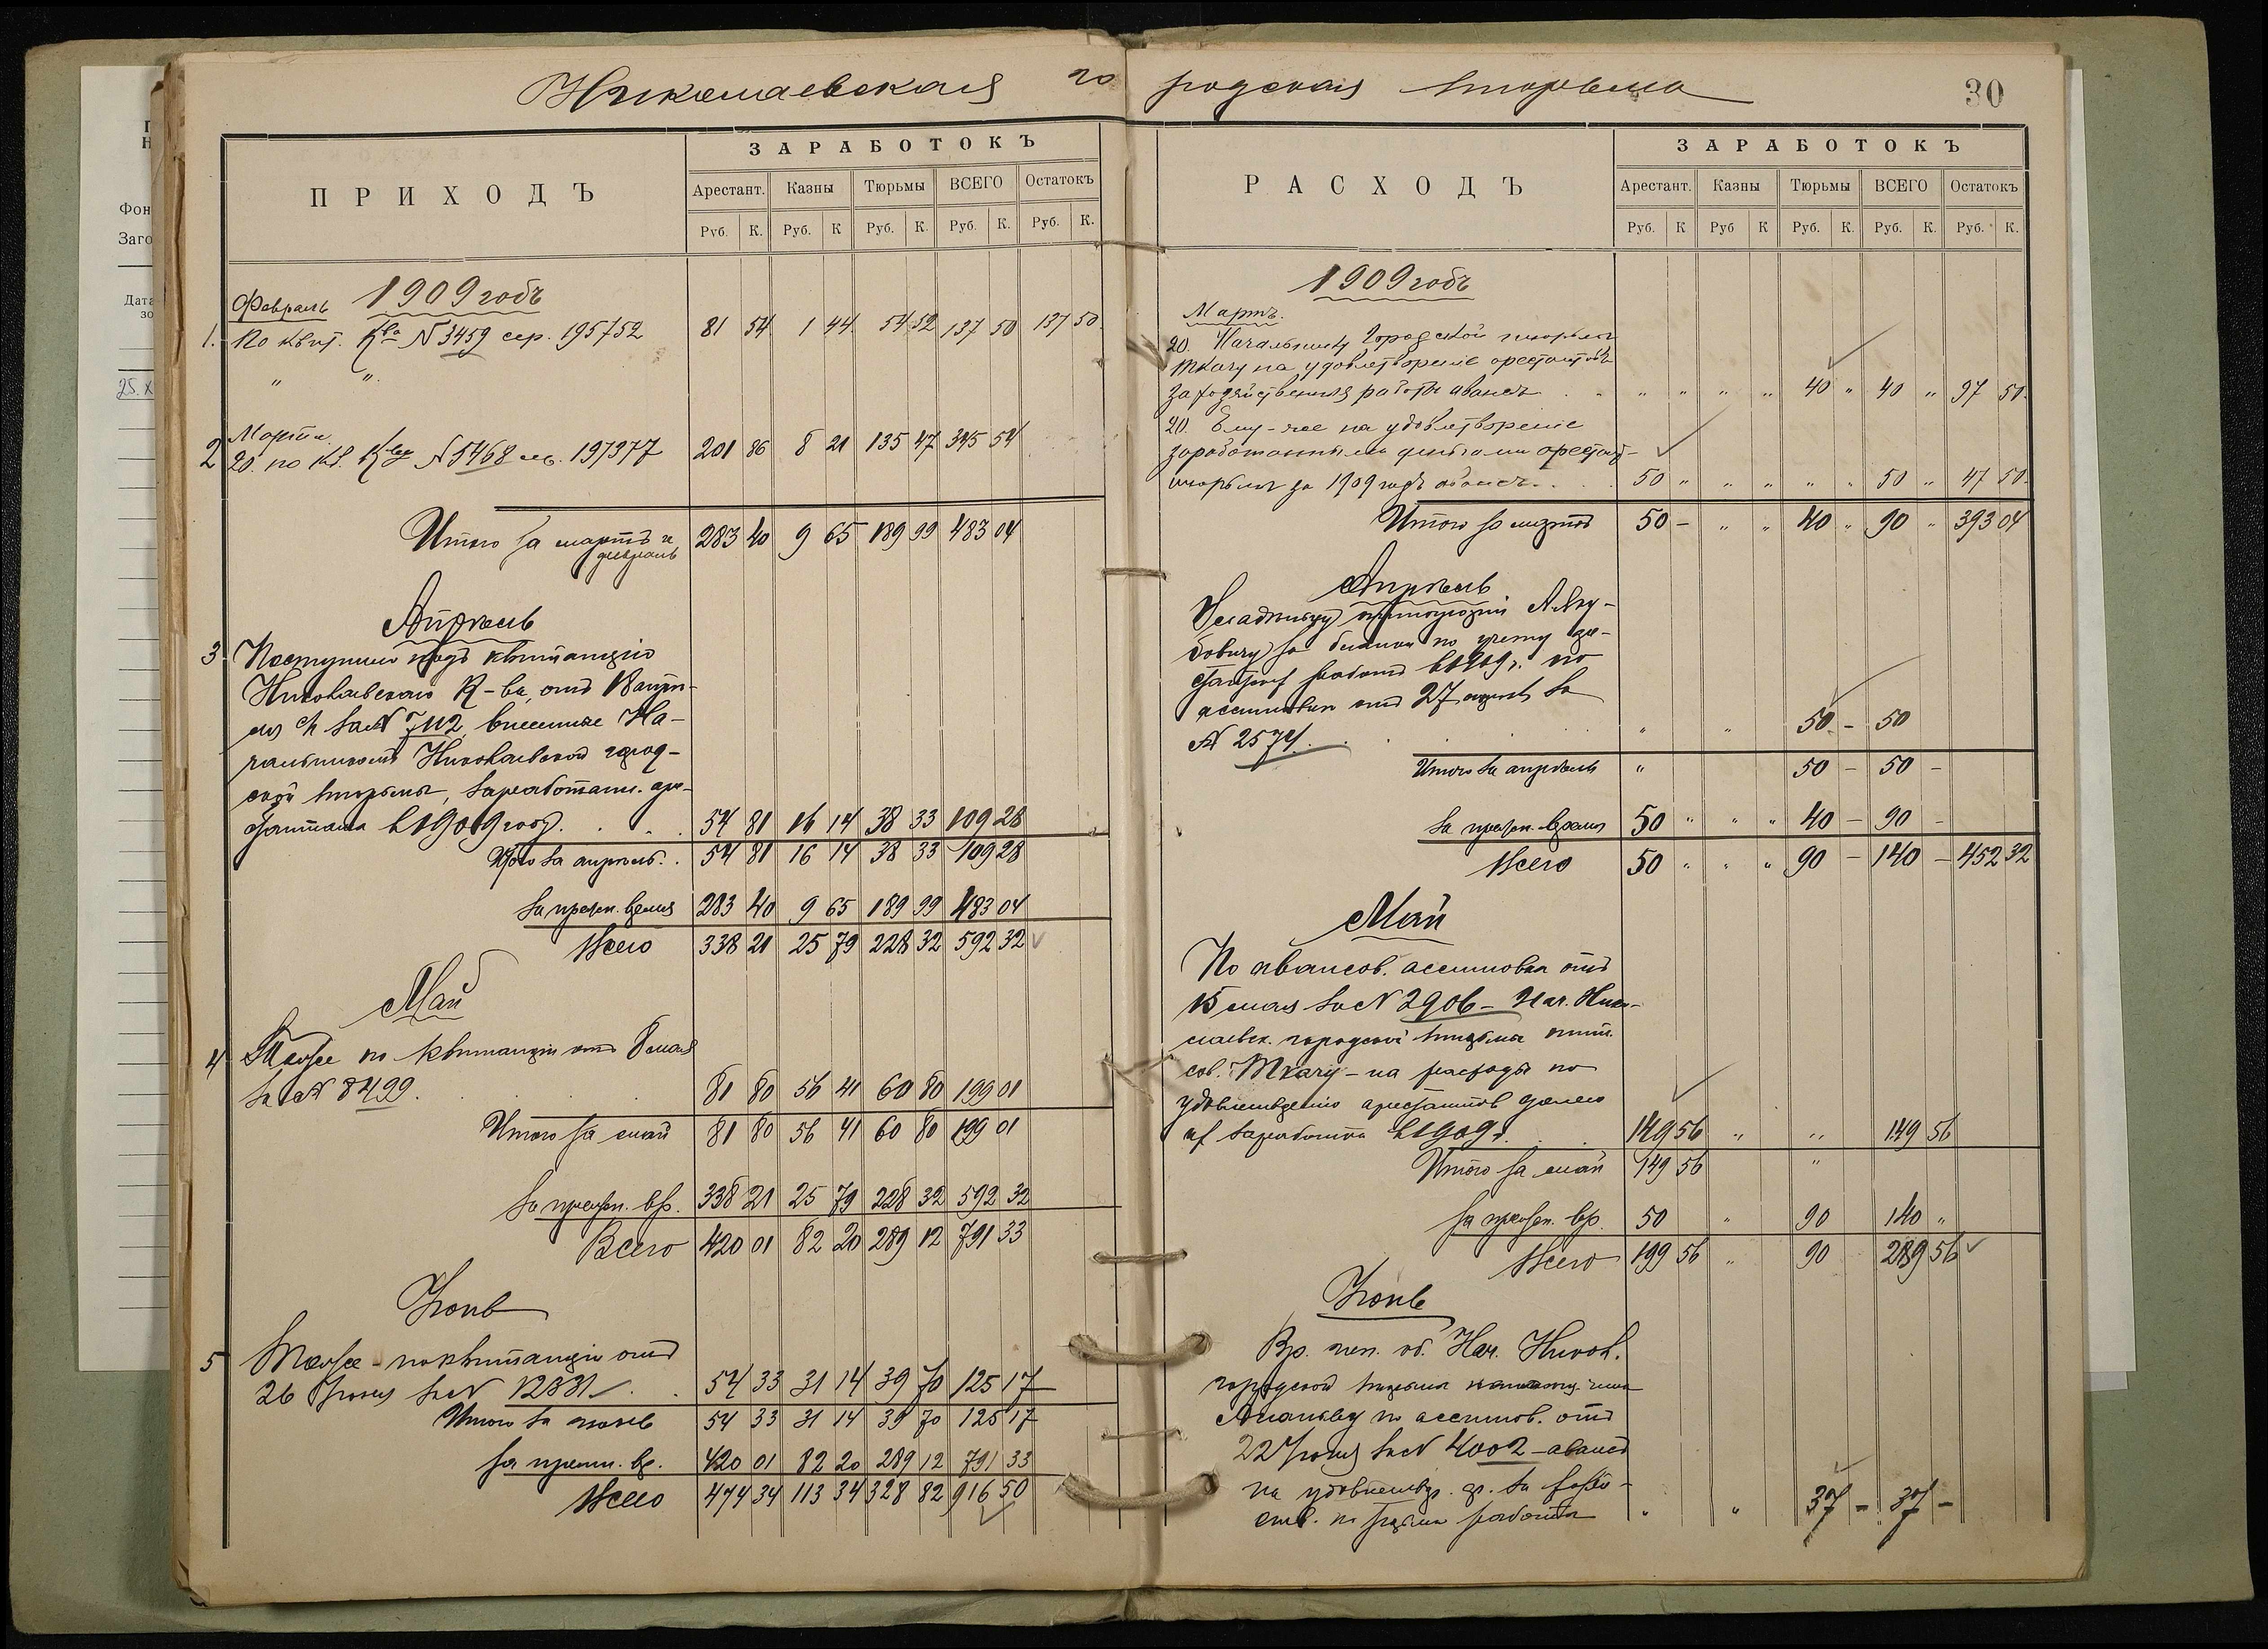 Николаевская го родская тюрьма
30
ПРИХОДЪ
ЗАРАБОТОКЪ
Арестант. Казны Тюрьмы ВСЕГО Остатокъ
Руб. К. Руб. К Руб. К. Руб. К. Руб. К.
1909 годъ
Февраль
1. По квит. Ква № 3459 сер. 195752 81 54 1 44 54 52 137 50 137 50
" "
Марта
2 20. по кв. Ква № 5468 197377 201 86 8 21 135 47 345 54
Итого за мартъ и февраль 283 40 9 65 189 99 483 04
Апрѣль
3 Поступило подъ квитанцію
Николаевскаго К-ва, отъ
за № 7112, внесенные На-
чальникомъ Николаевской город-
ской тюрьмы, заработан. аре-
стантами въ 1909 году. . . 54 81 16 14 38 33 109 28
Итого за апрѣль. . 54 81 16 14 38 33 109 28
За прежн. время 283 40 9 65 189 99 483 04
Всего 338 21 25 79 228 32 592 32
Май
4 Также по квитанціи отъ 8 мая
за № 8499. 81 80 56 41 60 80 199 01
Итого за май 81 80 56 41 60 80 199 01
За прежн. вр. 338 21 25 79 228 32 592 32
Всего 420 01 82 20 289 12 791 33
Іюнь
5 Также - по квитанціи отъ
26 Іюня за № 12831 . . 54 33 31 14 39 70 125 17
Итого за іюнь 54 33 31 14 39 70 125 17
За прежн. вр. 420 01 82 20 289 12 791 33
Всего 474 34 113 34 328 82 916 50
РАСХОДЪ
ЗАРАБОТОКЪ
Арестант. Казны Тюрьмы ВСЕГО Остатокъ
Руб. К Руб К Руб. К. Руб. К. Руб. К.
1909 годъ
Мартъ.
20. Начальнику Городской тюрьмы
Ткачу на удовлетвореніе арестантовъ
за хозяйственныя работы авансъ . . " " " " 40 " 40 " 97 50.
20. Ему-же на удовлетвореніе
заработанными деньгами арестант-
тюрьмы за 1909 годъ авансъ. . . 50 " " " " " 50 " 47 50.
Итого за мартъ 50 - " " 40 " 90 " 393 04
Апрѣль
бовичу за бланки по учету
работъ въ 1909 г. по
ассигновкѣ отъ 27 за
№ 2574. . . " " 50 - 50
Итого за апрѣль " 50 - 50 -
За прежн. время 50 " " " 40 - 90 -
Всего 50 " " " 90 - 140 - 452 32
Май
По авансов. ассигновкѣ отъ
15 мая за № 2906 - Нач. Нико-
лаевск. городской тюрьмы тит.
сов. Ткачу - на расходы по
удовлетворенію арестантовъ
изъ заработка въ 1909 г. . . 149 56 " " 149 56
Итого за май 149 56 "
За прежн. вр. 50 " 90 140 "
Всего 199 56 " 90 289 56
Іюнь
Вр. исп. об. Нач. Никол.
городской тюрьмы
по ассигнов. отъ
22 Іюня за № 4002 - авансъ
на удовлетвор. ар. за хозяй-
ств. по тюрьмѣ работы " " 37 - 37 -